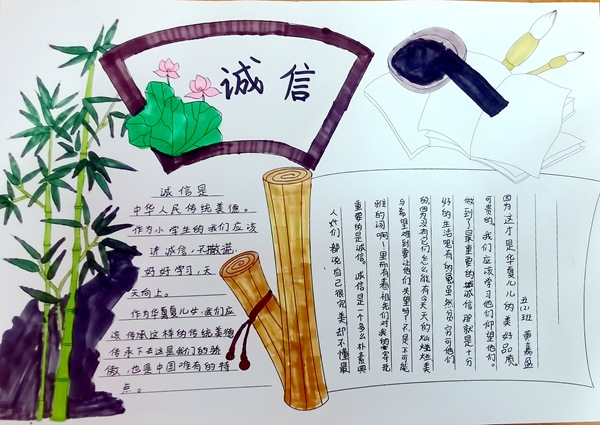 诚信
诚信是
中华人民传统美德。
作为小学生的我们应该
讲诚信,不撒谎,
好好学习,天
天向上。
作为华夏儿女,我们应
该传承这样的传统美德
传承下去这是我们的骄
傲,也是中国唯有的特
点。
人们都说自己很完美却不懂最
重要的是诚信。诚信是一个多么朴素典
雅的词啊!里面有着祖先们对我的
与希望难到要让他们失望吗?不是不可能
的因为没有它们怎么能有今天的灿烂
好的生活呢有的
做到了最重要的诚信那就是十分
可贵的。我们应该学习他们仰望他们。
因为这才是华夏儿儿的美好品质
五(2)班 黄嘉盛